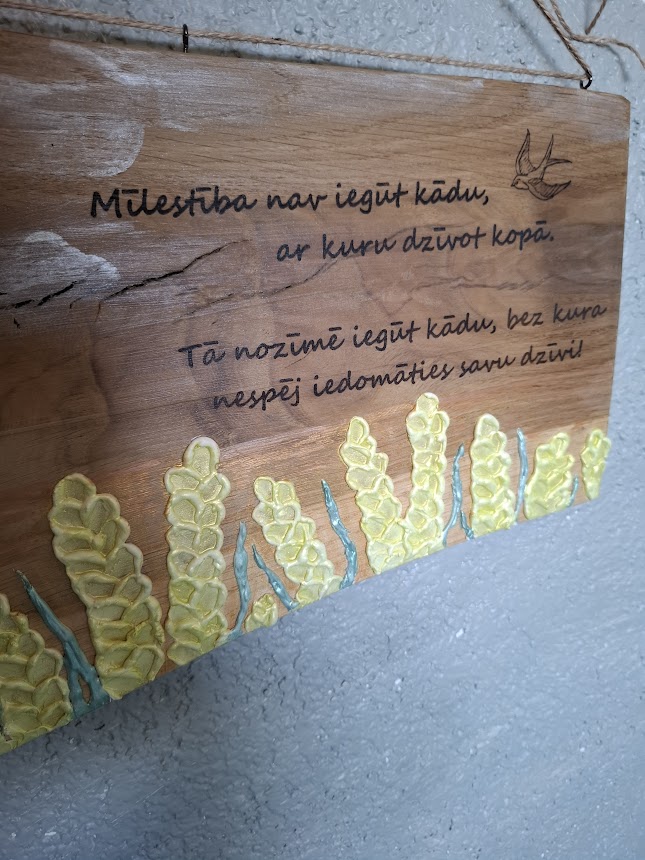 Mīlestība nav iegūt kādu,
ar kuru dzīvot kopā.
Tā nozīmē iegūt kādu, bez kura
nespēj iedomāties savu dzīvi!